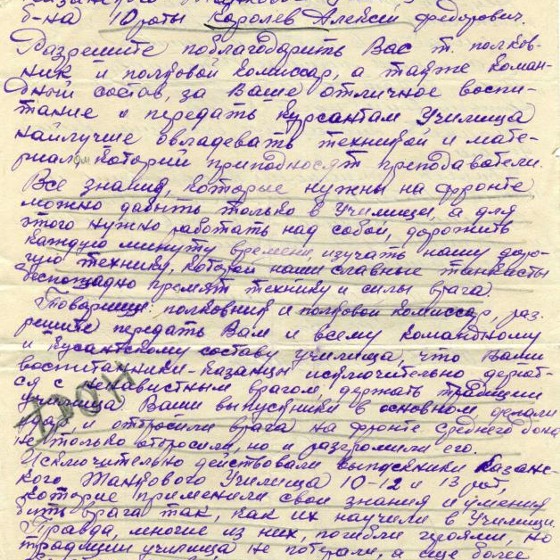 б-на 10 роты Королев Алексей Федорович.
Разрешите поблагодарить Вас т. полков-
ник и полковой комиссар, а также коман-
дный состав, за Ваше отличное воспи-
тание и передать курсантам Училища
наилучше овладевать техникой и мате-
риалом который приподносят преподаватели.
Все знания, которые нужны на фронте
можно добыть только в Училищи, а для
этого нужно работать над собой, дорожить
каждую минуту времени, изучать нашу доро-
гую технику, которой наши славные танкисты
беспощадно громят технику и силы врага
Товарищи: полковник и полковой комиссар, раз-
решите передать Вам и всему командному
и курсантскому составу училища, что Ваши
воспитанники-казанцы исключительно дерут-
ся с ненавистным врагом, держать традиции
училища Ваши выпускники в основном, делали
удар, и отбросили врага на фронте среднего дона
не только отбросили, но и разгромили его.
Исключительно действовали выпускники Казан-
кого Танкового Училища 10-12 и 13 рот,
которые применили свои знания и умения
бить врага так, как их научили в Училище.
Правда, многие из них, погибли героями, но
традиции училища не потеряли, а еще более